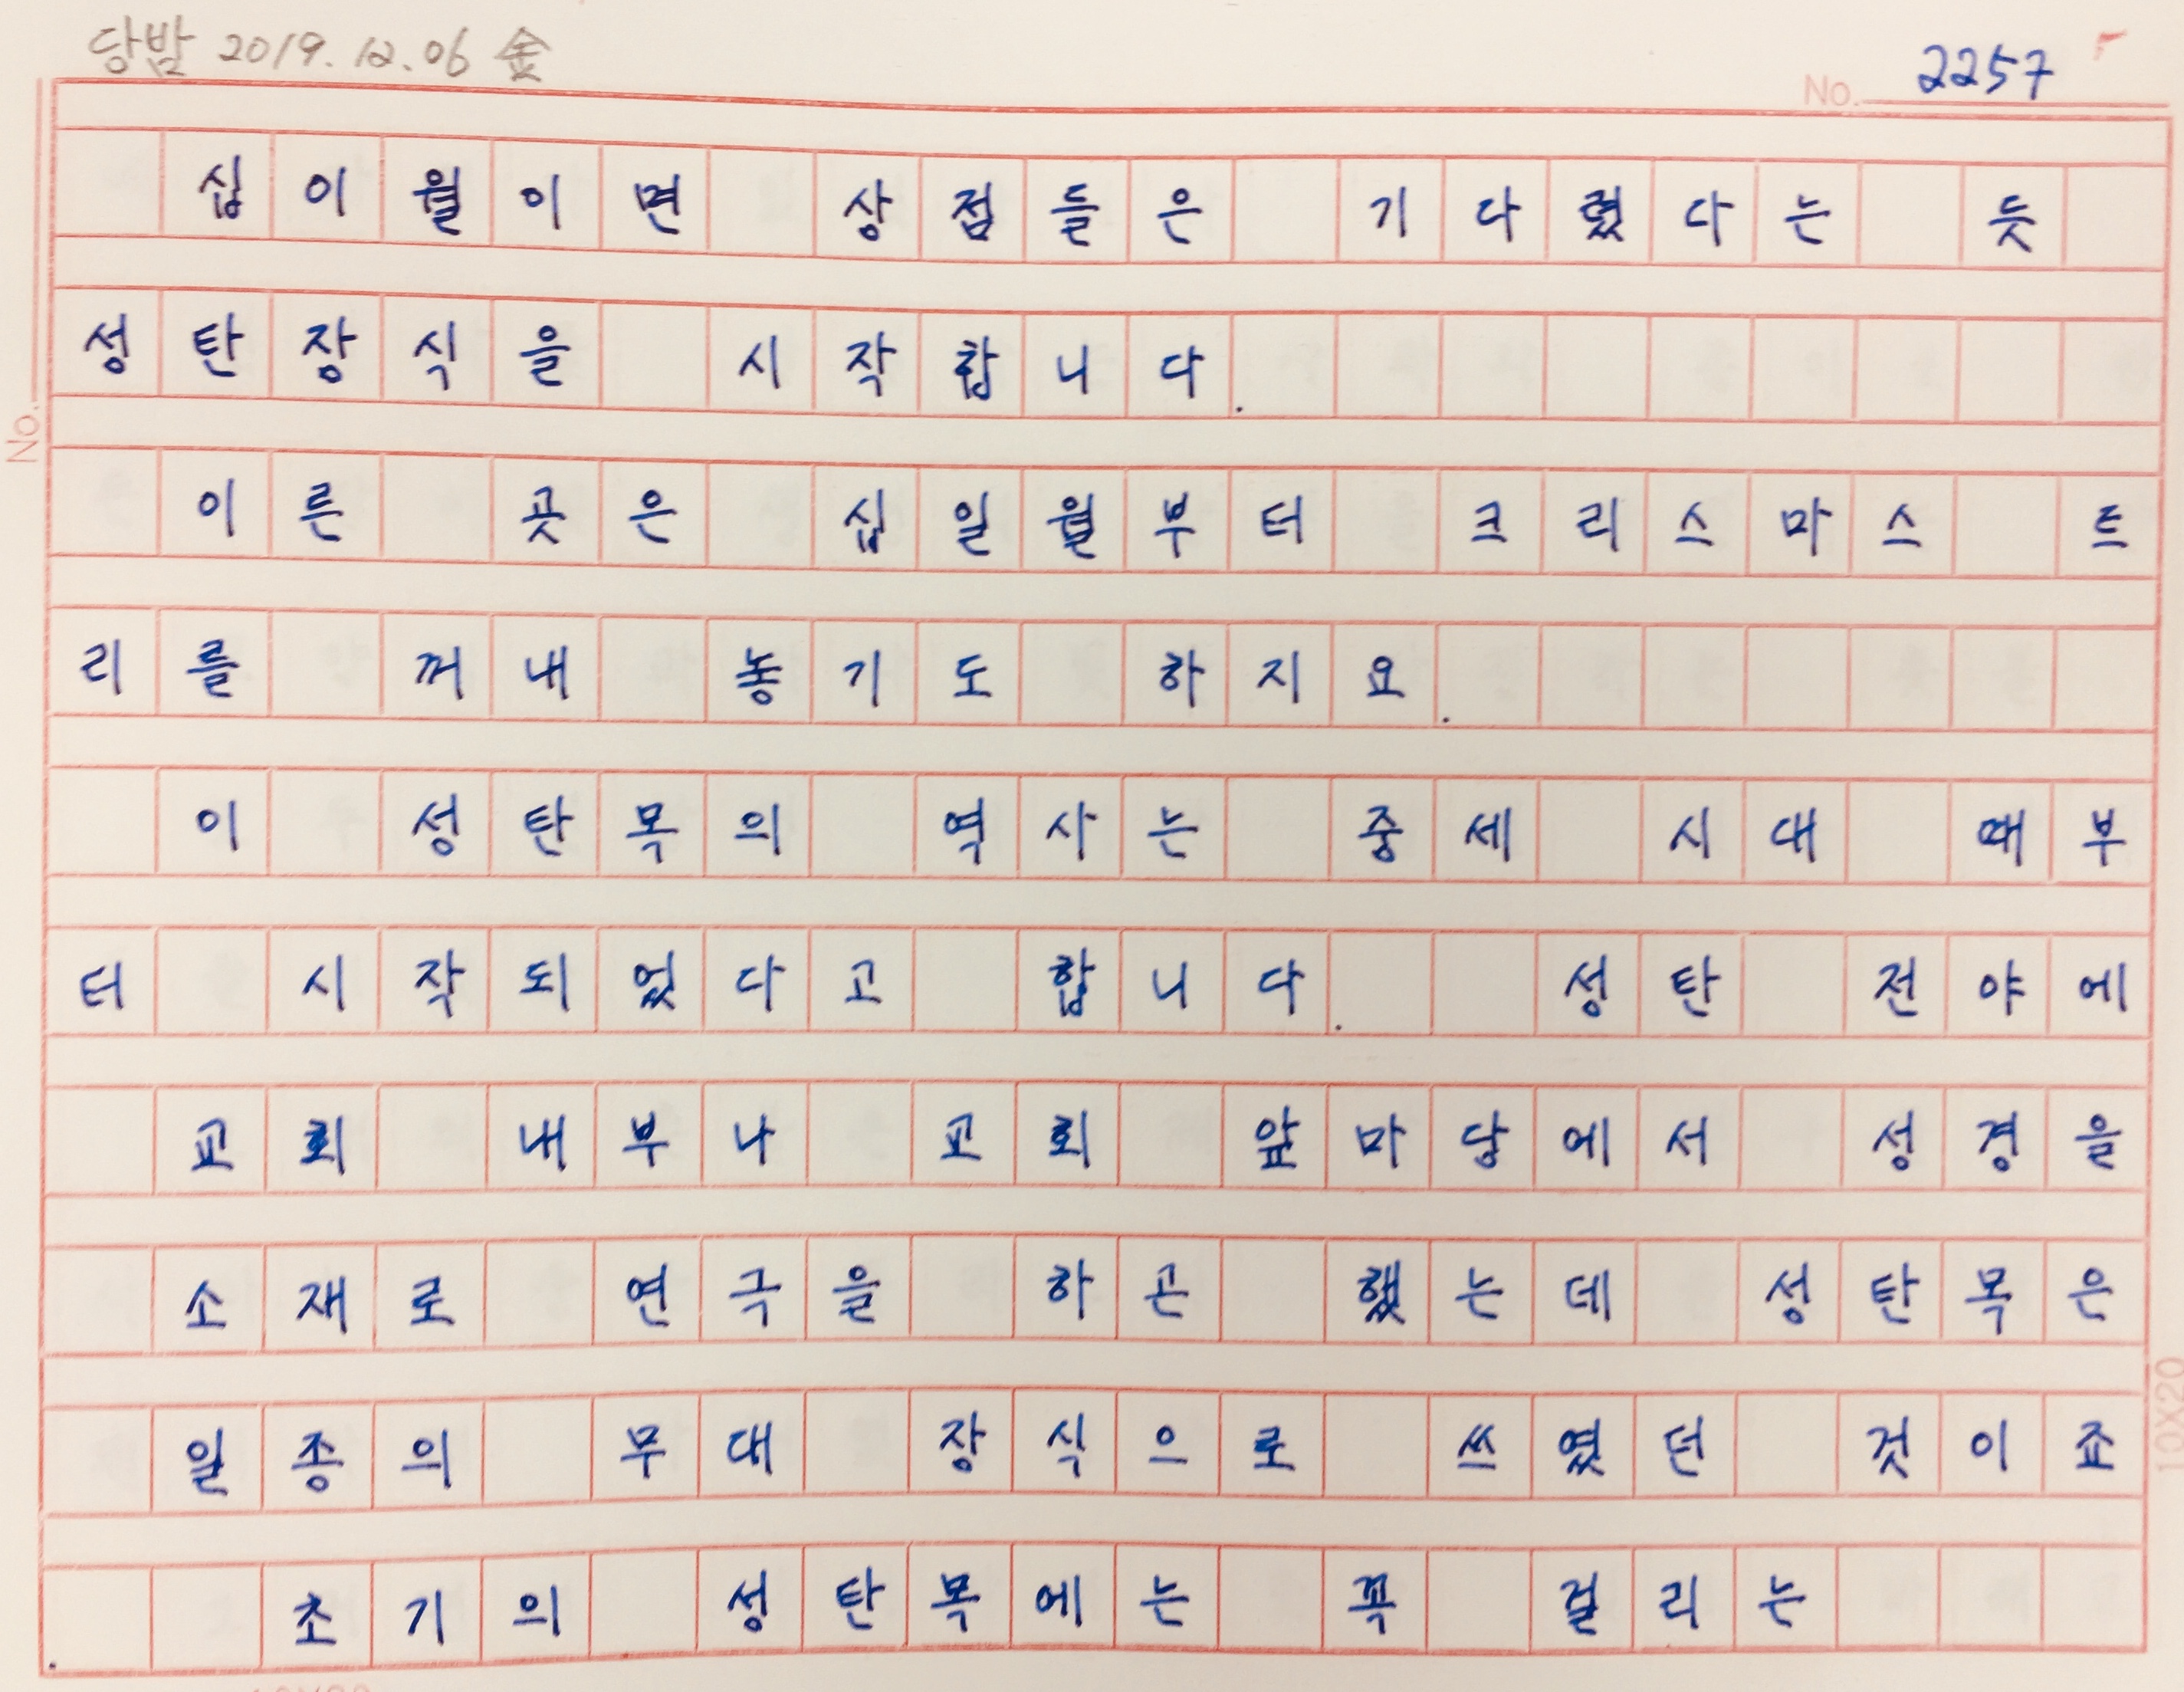 당밤 2019.12.06 金
No. 2257
십이월이면 상점들은 기다렸다는 듯
성탄장식을 시작합니다.
No.
이른 곳은 십일월부터 크리스마스 트
리를 꺼내 놓기도 하지요.
이 성탄목의 역사는 중세 시대 때부
터 시작되었다고 합니다. 성탄 전야에
교회 내부나 교회 앞마당에서 성경을
소재로 연극을 하곤 했는데 성탄목은
일종의 무대 장식으로 쓰였던 것이죠
. 초기의 성탄목에는 꼭 걸리는
10X20